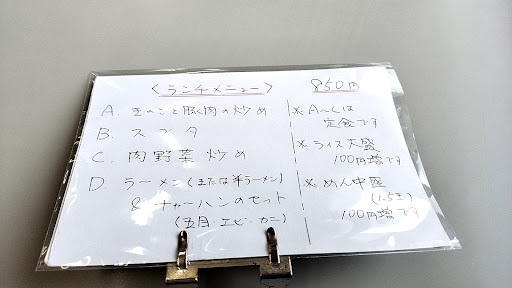 〈ランチメニュー〉 850円
A. きのこと豚肉の炒め
B. スブタ
C. 肉野菜炒め
D. ラーメン(または半ラーメン)
& チャーハンのセット
(五目・エビ・カニ)
※A〜Cは
定食です
※ライス大盛
100円増です
※めん中盛
(1.5玉)
100円増です